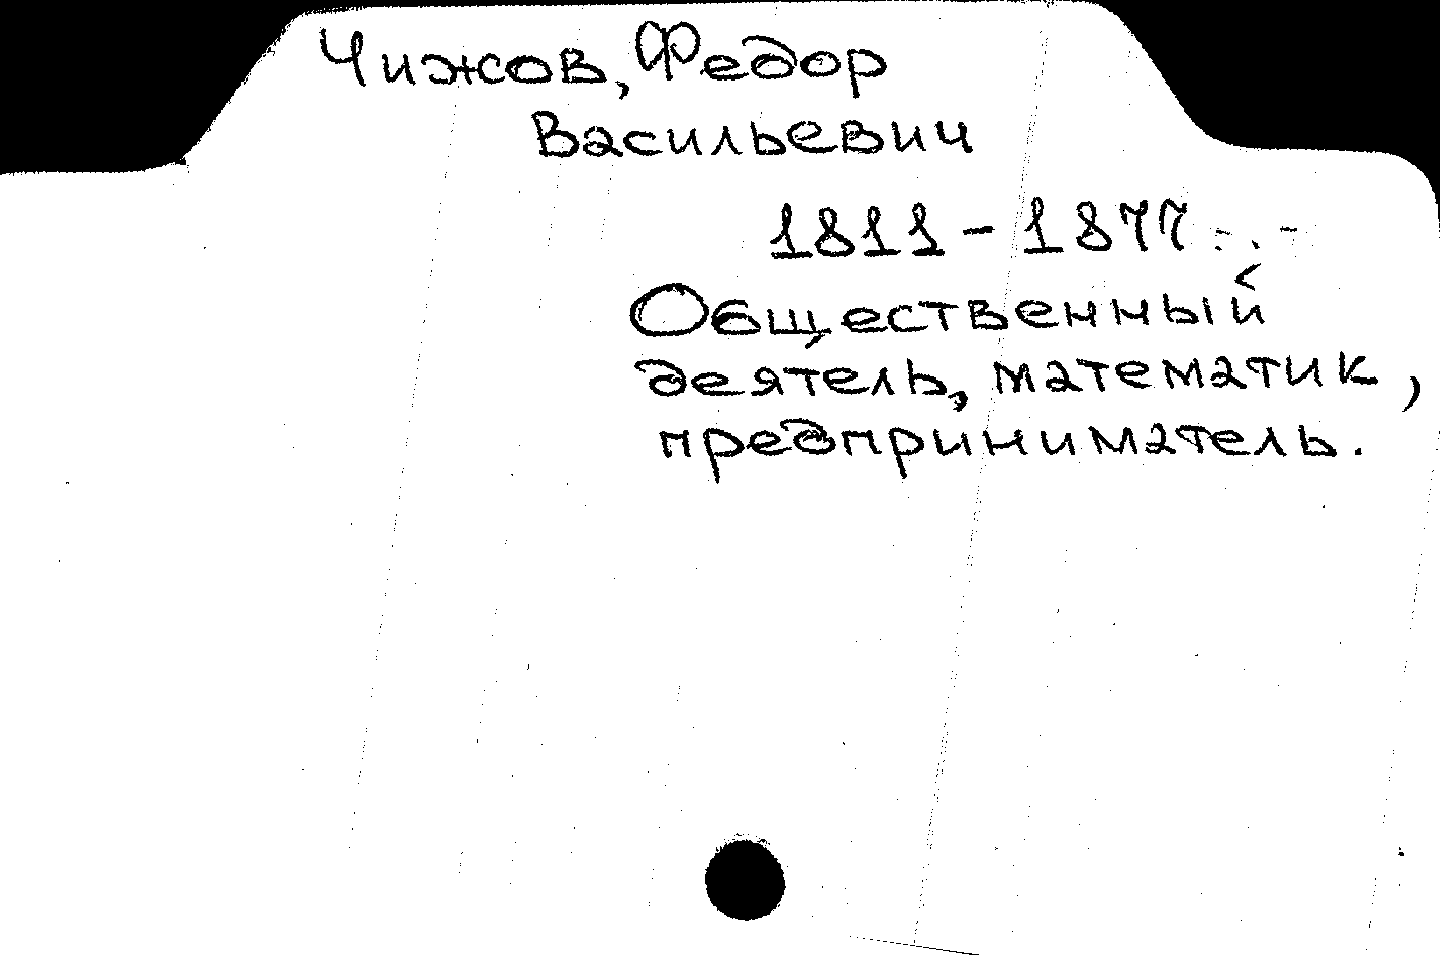 Чижов, Федор
Васильевич
1811-1877
Общественный
деятель, математик,
предприниматель.